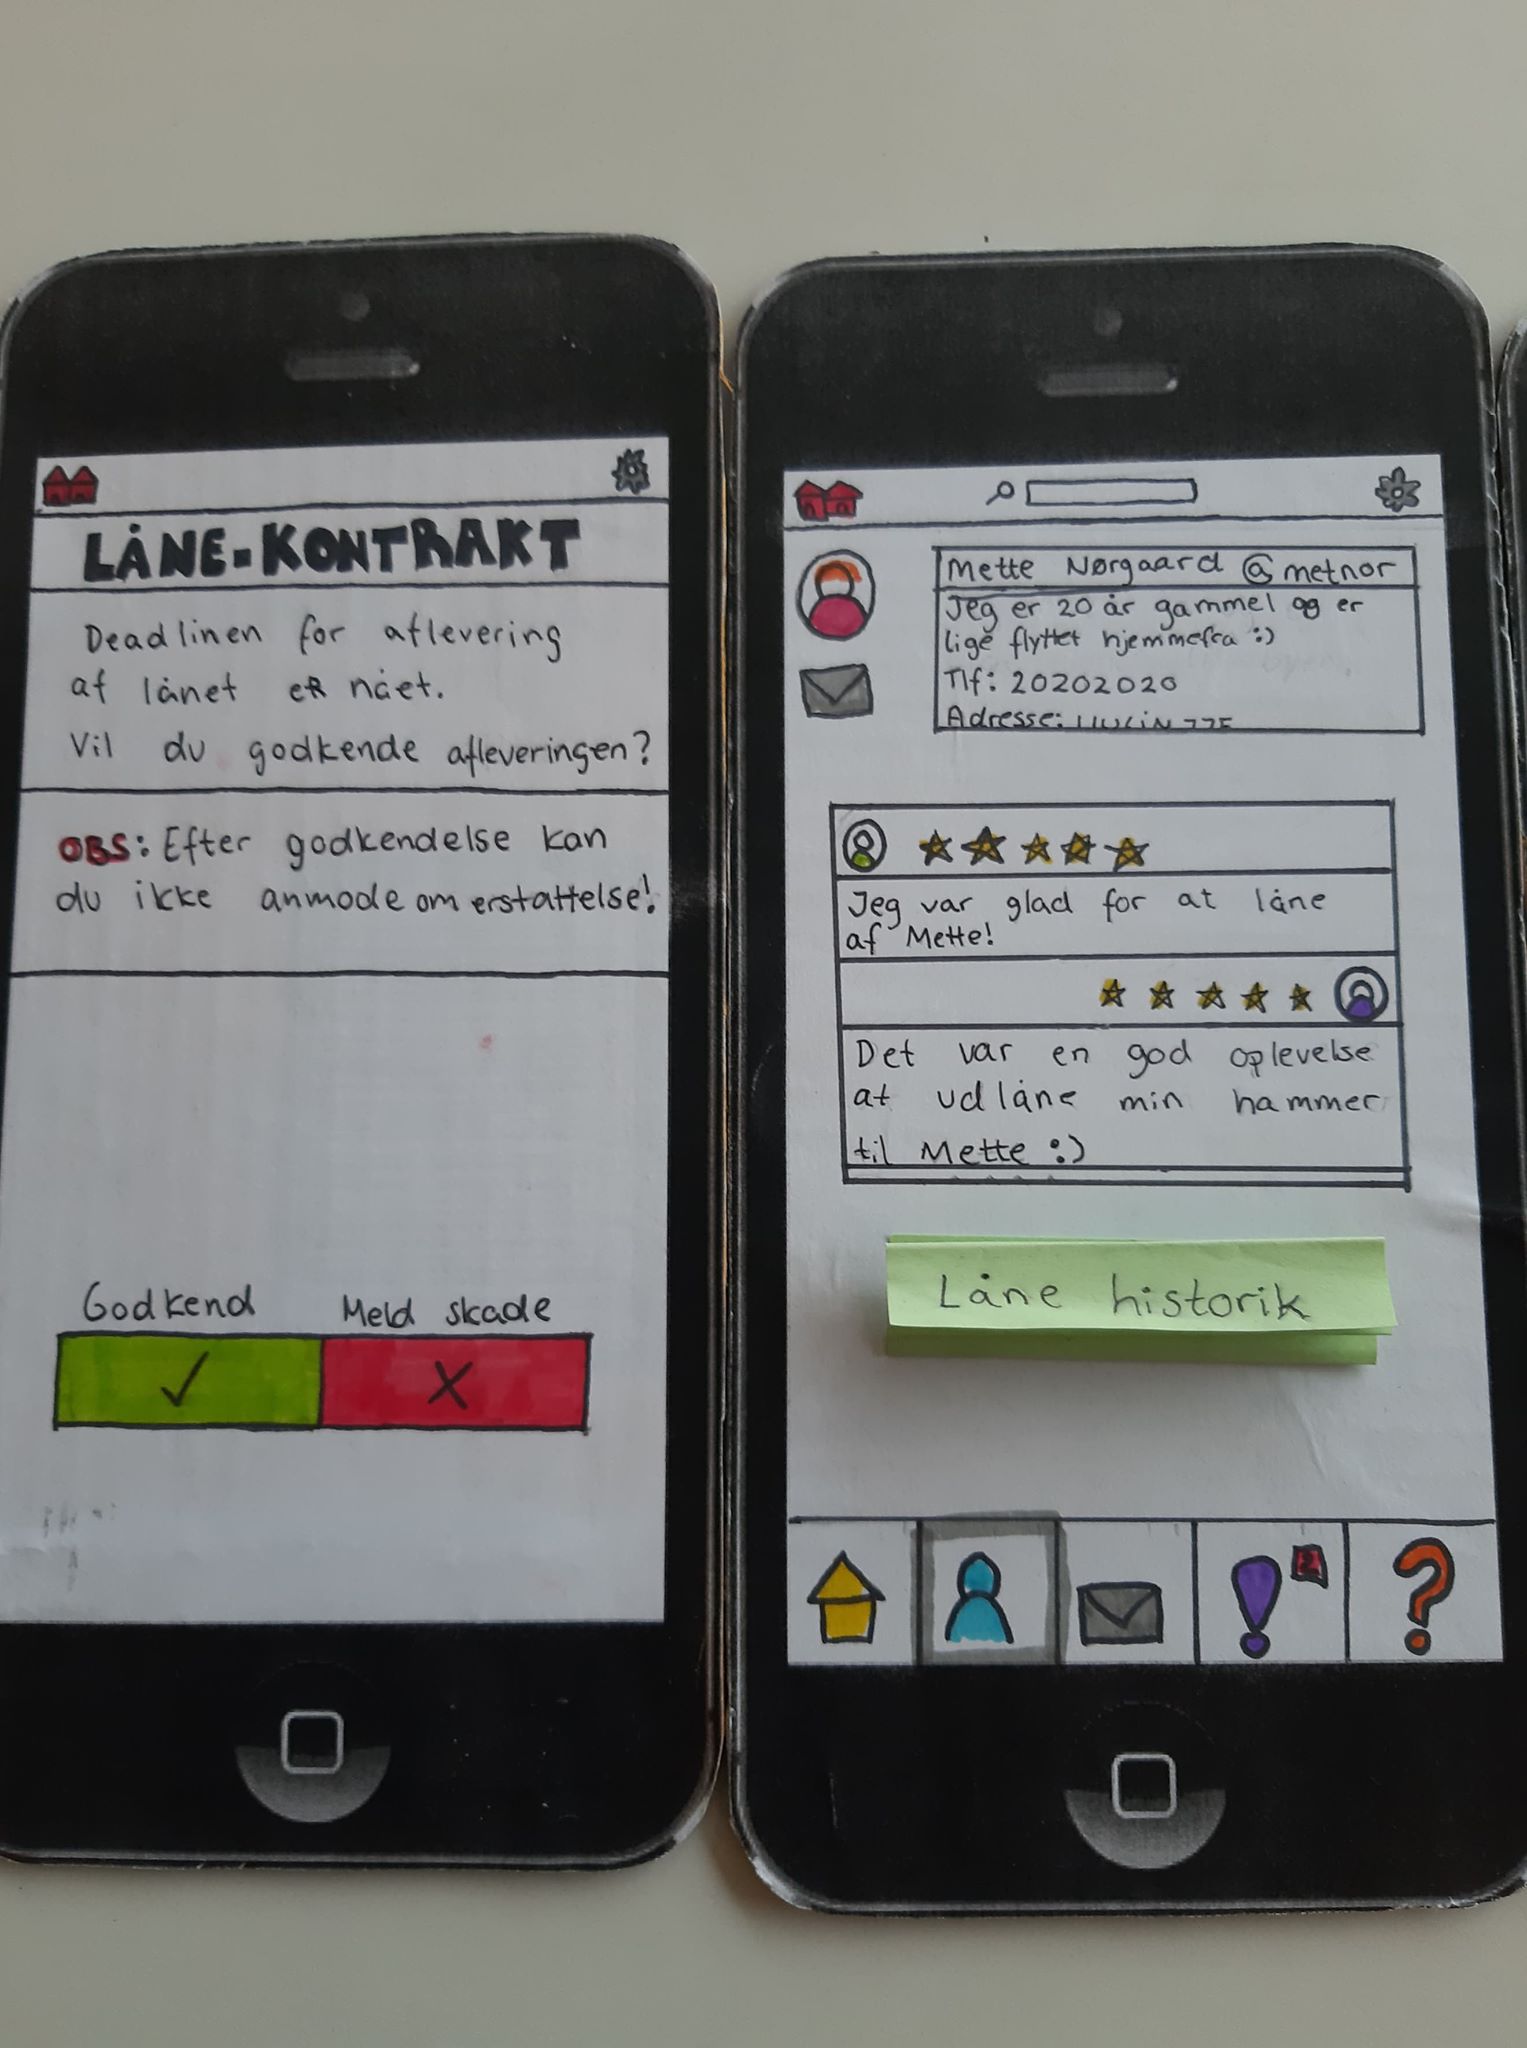 LÅNE-KONTRAKT
Deadlinen for aflevering
af lånet er nået.
Vil du godkende afleveringen?
OBS: Efter godkendelse kan
du ikke anmode om erstattelse!
Godkend
Meld skade
Mette Nørgaard @metnor
Jeg er 20 år gammel og er
lige flyttet hjemmefra :)
Tlf: 20202020
Adresse:
Jeg var glad for at låne
af Mette!
Det var en god oplevelse
at udlåne min hammer
til Mette :)
Låne historik
2